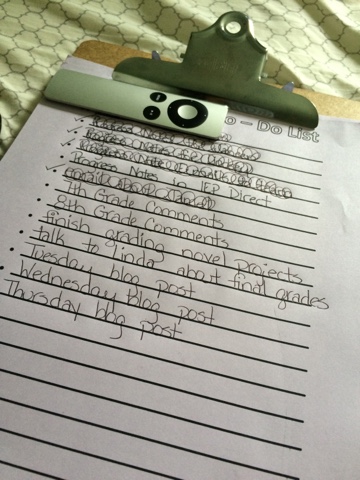 o - Do List
Progress Notes
Progress Notes
Progress Notes
Progress Notes in IEP Direct
7th Grade Comments
8th Grade Comments
finish grading novel projects
talk to Linda about final grades
Tuesday blog post
Wednesday Blog post
Thursday blog post